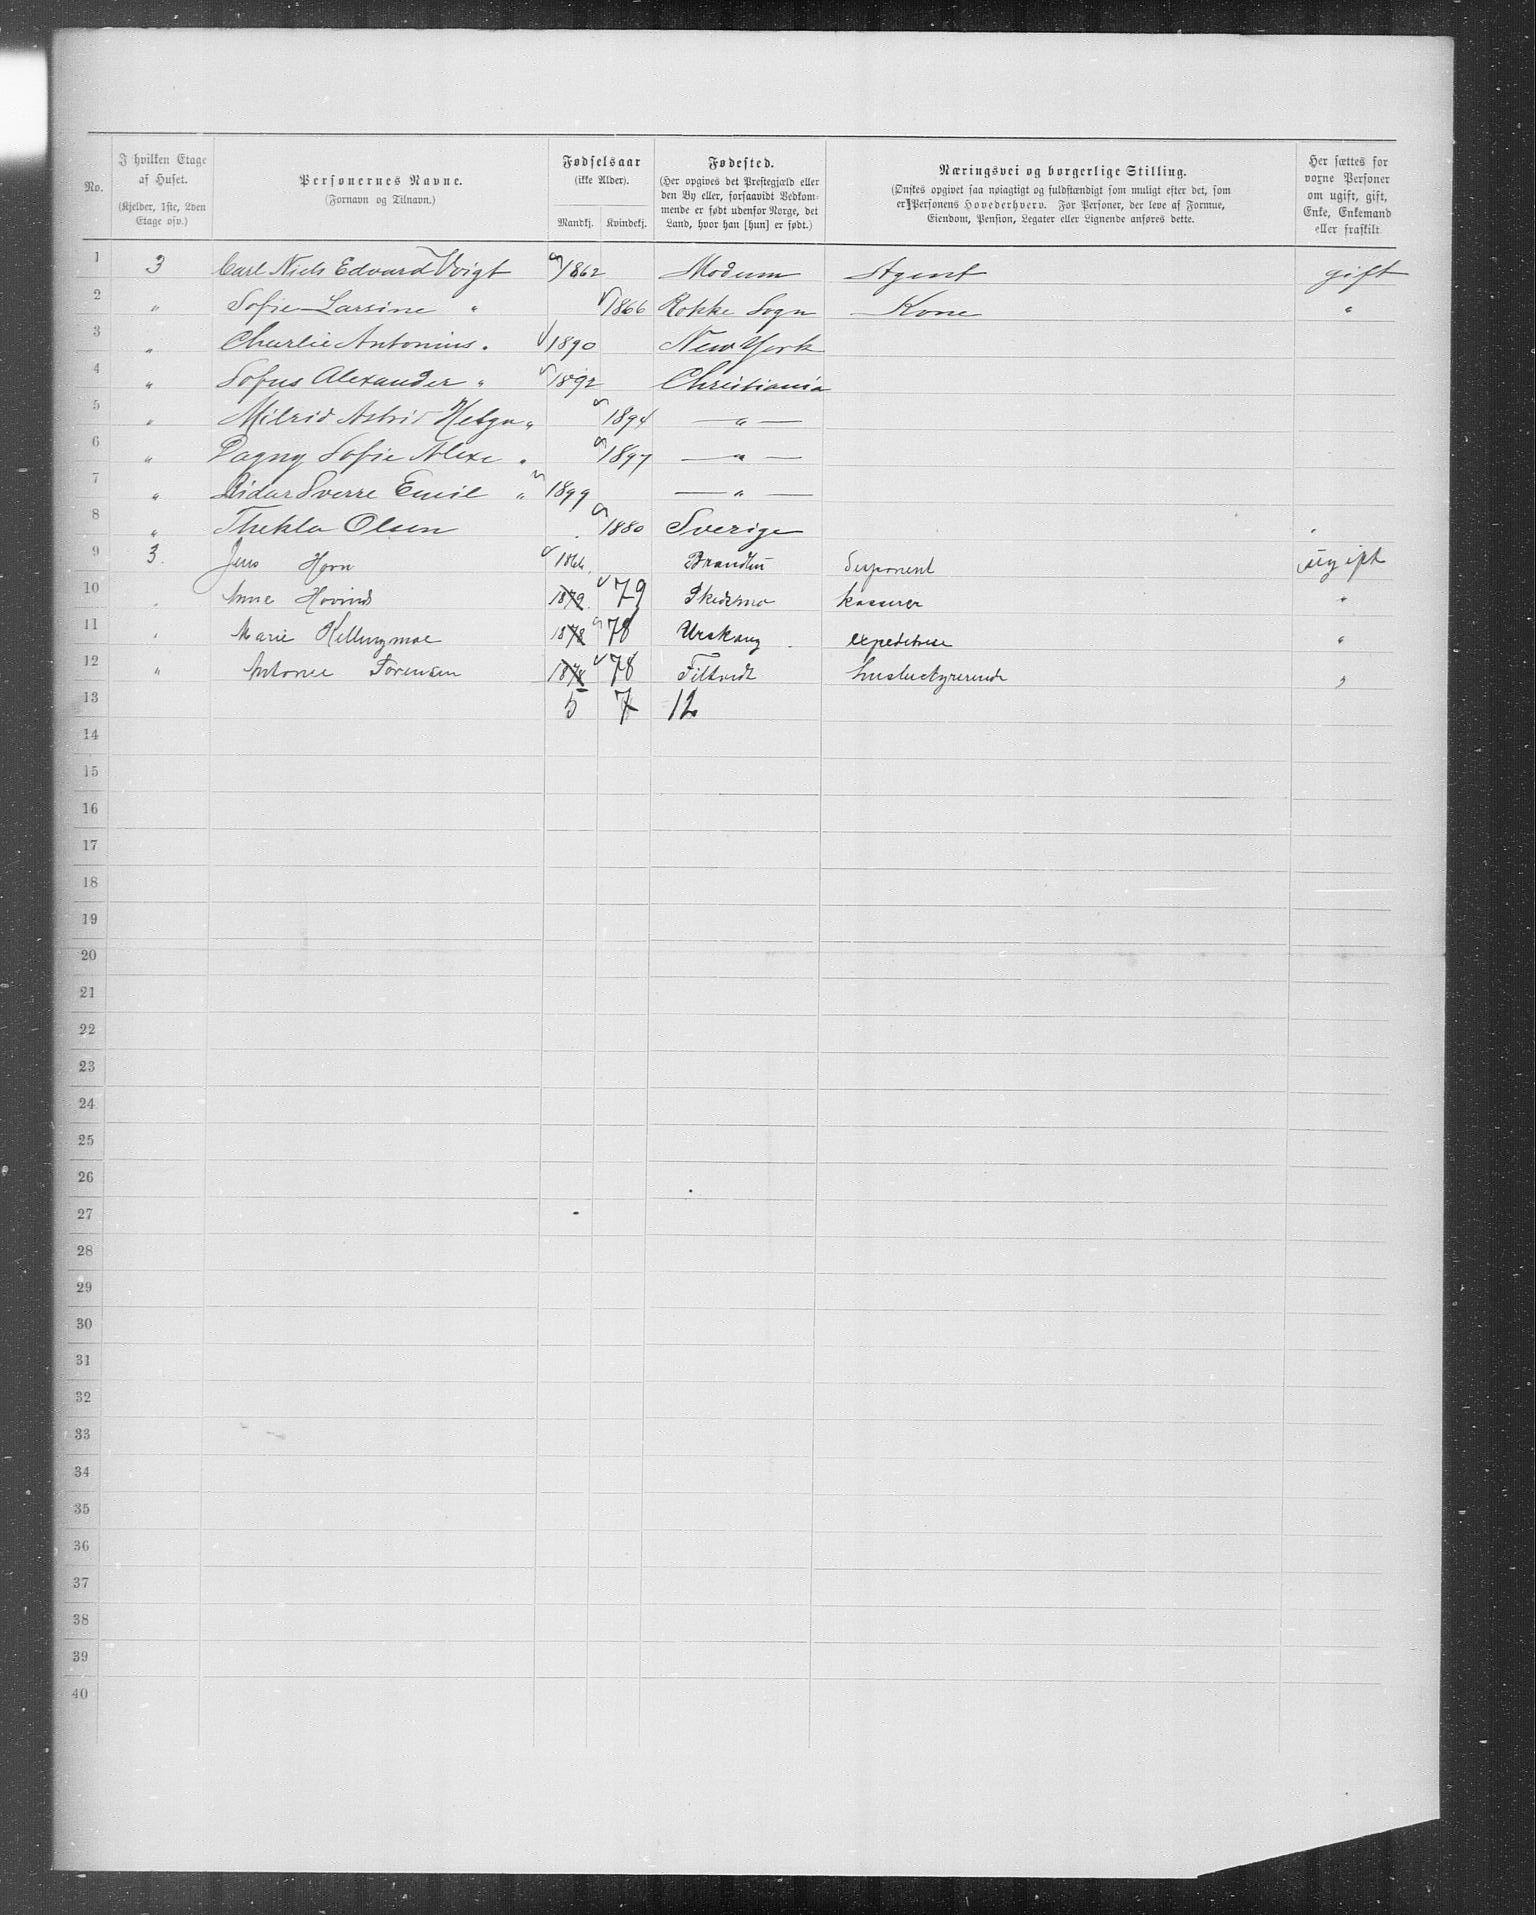 No.
I hvilken Etage af Huset.
(Kjelder, 1ste, 2den Etage osv.)
Personernes Navne.
(Fornavn og Tilnavn.)
Fødselsaar
(ikke Alder).
Mandkj. Kvindekj.
Fødested.
(Her opgives det Prestegjæld eller den By eller, forsaavidt Vedkommende er født udenfor Norge, det Land, hvor han [hun] er født.)
Næringsvei og borgerlige Stilling.
(Ønskes opgivet saa nøiagtigt og fuldstændigt som muligt efter det, som er Personens Hovederhverv. For Personer, der leve af Formue, Eiendom, Pension, Legater eller Lignende anføres dette.
Her sættes for voxne Personer om ugift, gift, Enke, Enkemand eller fraskilt
1 3 Carl Niels Edvard Voigt 1862 Modum Agent gift
2 " Sofie Larsine " 1866 Rokke Sogn Kone "
3 " Charlie Antonius " 1890 New York
4 " Sofus Alexander " 1892 Christiania
5 " Milrid Astrid Helga " 1894 — " —
6 " Dagny Sofie Alexe " 1897 — " —
7 " Ridar Sverre Emil " 1899 — " —
8 " Thekla Olsen 1880 Sverige
9 3. Jens Horn 1866. Brandbu disponent ugift
10 " Anne Hovind 1879. 79 Skedsmo kasserer "
11 " Marie Killingmoe 1878 78 Urskoug expeditrice "
12 " Antonie Sørensen 1878 78 Filtvedt husbestyrerinde "
13 5 7 12
14
15
16
17
18
19
20
21
22
23
24
25
26
27
28
29
30
31
32
33
34
35
36
37
38
39
40